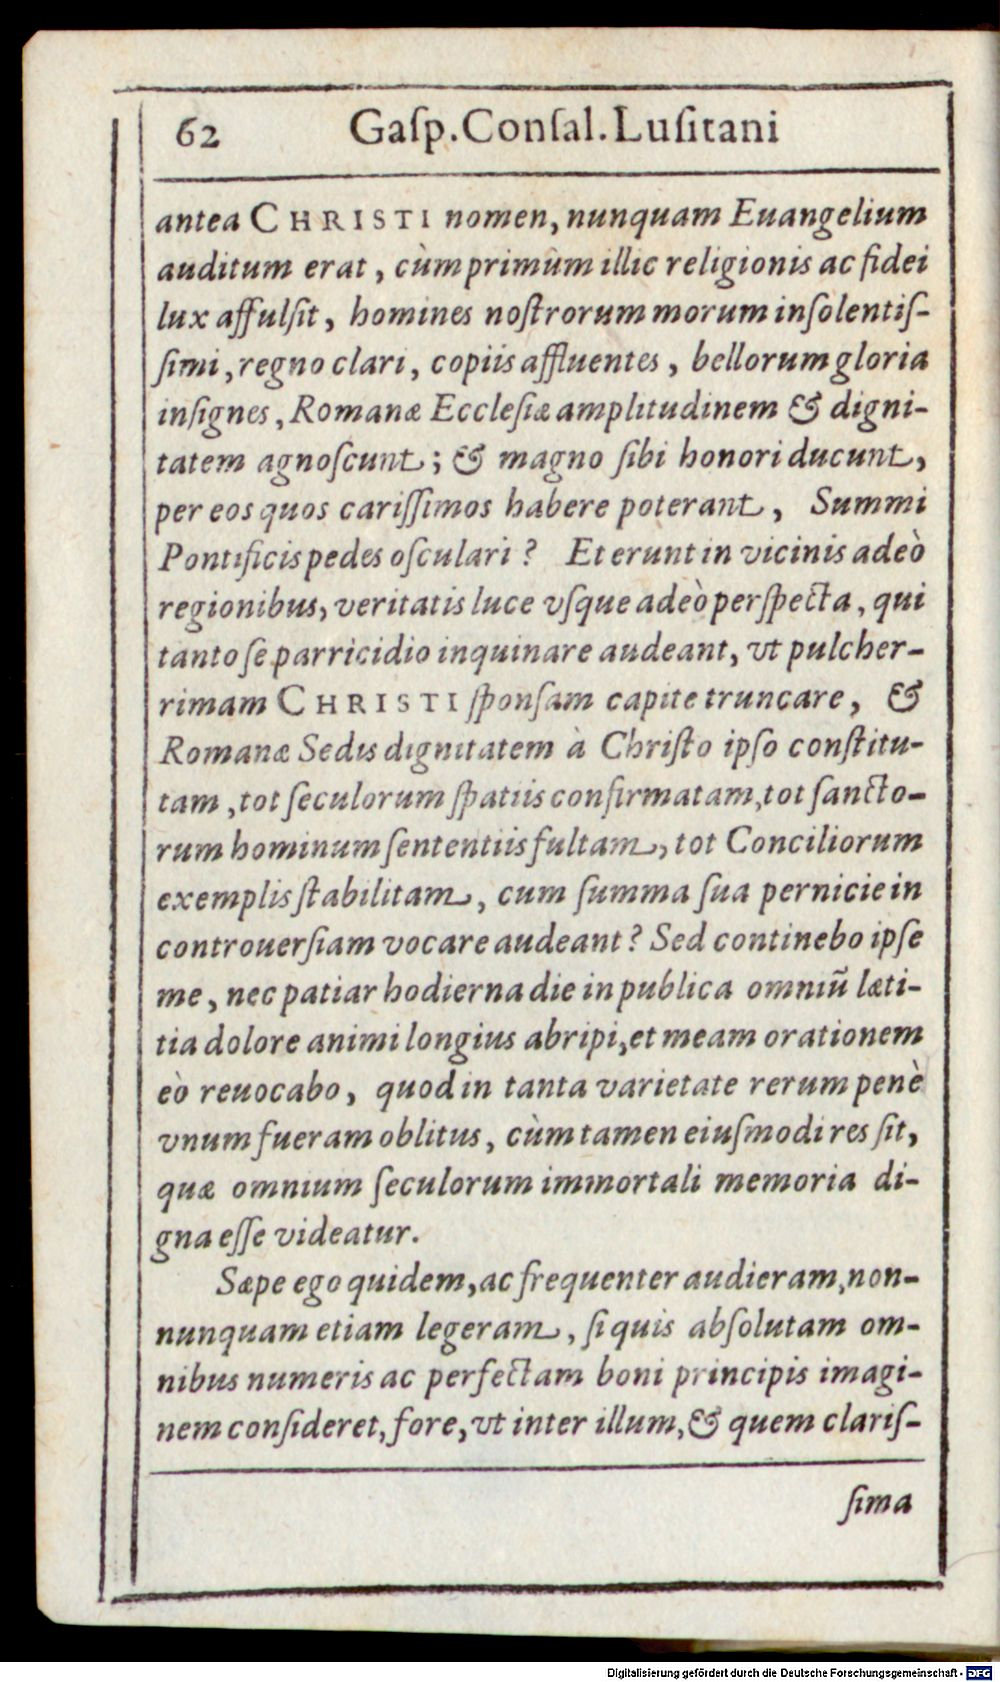 62 Gaſp. Conſal. Luſitani
antea CHRISTI nomen, nunquam Euangelium
auditum erat, cùm primùm illic religionis ac fidei
lux affulſit, homines noſtrorum morum inſolentiſ-
ſimi, regno clari, copiis affluentes, bellorum gloria
inſignes, Romanæ Eccleſiæ amplitudinem & digni-
tatem agnoſcunt; & magno ſibi honori ducunt,
per eos quos cariſſimos habere poterant, Summi
Pontificis pedes oſculari? Et erunt in vicinis adeò
regionibus, veritatis luce vſque adeò perſpecta, qui
tanto ſe parricidio inquinare audeant, vt pulcher-
rimam CHRISTI ſponſam capite truncare, &
Romanæ Sedis dignitatem à Chriſto ipſo conſtitu-
tam, tot ſeculorum ſpatiis confirmatam, tot ſancto-
rum hominum ſententiis fultam, tot Conciliorum
exemplis ſtabilitam, cum ſumma ſua pernicie in
controuerſiam vocare audeant? Sed continebo ipſe
me, nec patiar hodierna die in publica omniũ læti-
tia dolore animi longius abripi, et meam orationem
eò reuocabo, quod in tanta varietate rerum penè
vnum fueram oblitus, cùm tamen eiuſmodi res ſit,
quæ omnium ſeculorum immortali memoria di-
gna eſſe videatur.
Sæpe ego quidem, ac frequenter audieram, non-
nunquam etiam legeram, ſi quis abſolutam om-
nibus numeris ac perfectam boni principis imagi-
nem conſideret, fore, vt inter illum, & quem clariſ-
ſima
Digitalisierung gefördert durch die Deutsche Forschungsgemeinschaft - DFG